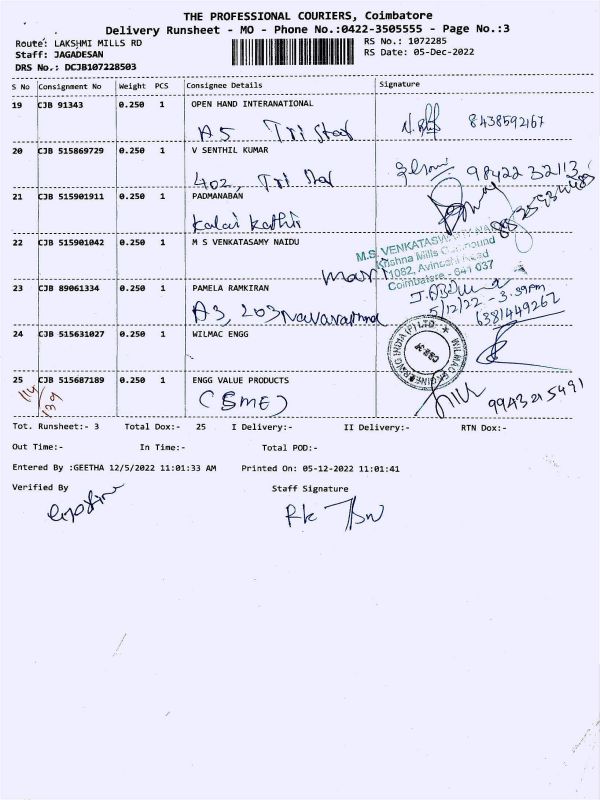 THE PROFESSIONAL COURIERS, Coimbatore
Delivery Runsheet - MO - Phone No.:0422-3505555 - Page No.:3
Route: LAKSHMI MILLS RD
RS No.: 1072285
Staff: JAGADESAN
RS Date: 05-Dec-2022
DRS No.: DCJB107228503
S No Consignment No Weight PCS Consignee Details Signature
19 CJB 91343 0.250 1 OPEN HAND INTERANATIONAL
A5 Tri Star 8438592167
20 CJB 515869729 0.250 1 V SENTHIL KUMAR
402, Tri Star 98422 32113
21 CJB 515901911 0.250 1 PADMANABAN
Kalai Kathir
22 CJB 515901042 0.250 1 M S VENKATASAMY NAIDU
M.S. VENKATASWAMY NAIDU
Krishna Mills Compound
1082, Avinashi Road
Coimbatore - 641 037
Mari
23 CJB 89061334 0.250 1 PAMELA RAMKIRAN
5/12/22 - 3.39pm
A3, 203 Navarathna 6381449262
24 CJB 515631027 0.250 1 WILMAC ENGG
WILMAC ENGINEERING INDIA (P) LTD.
25 CJB 515687189 0.250 1 ENGG VALUE PRODUCTS
114
139
(SME) 9943215491
Tot. Runsheet:- 3 Total Dox:- 25 I Delivery:- II Delivery:- RTN Dox:-
Out Time:- In Time:- Total POD:-
Entered By :GEETHA 12/5/2022 11:01:33 AM Printed On: 05-12-2022 11:01:41
Verified By Staff Signature